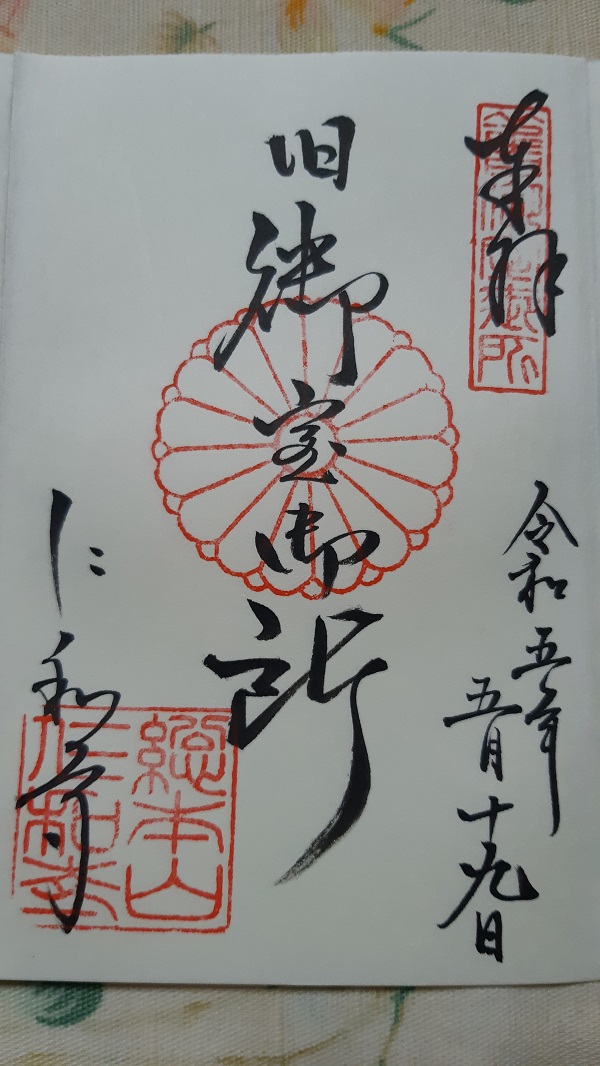 奉拝
令和五年
五月十九日
旧御室御所
仁和寺
総本山
仁和寺